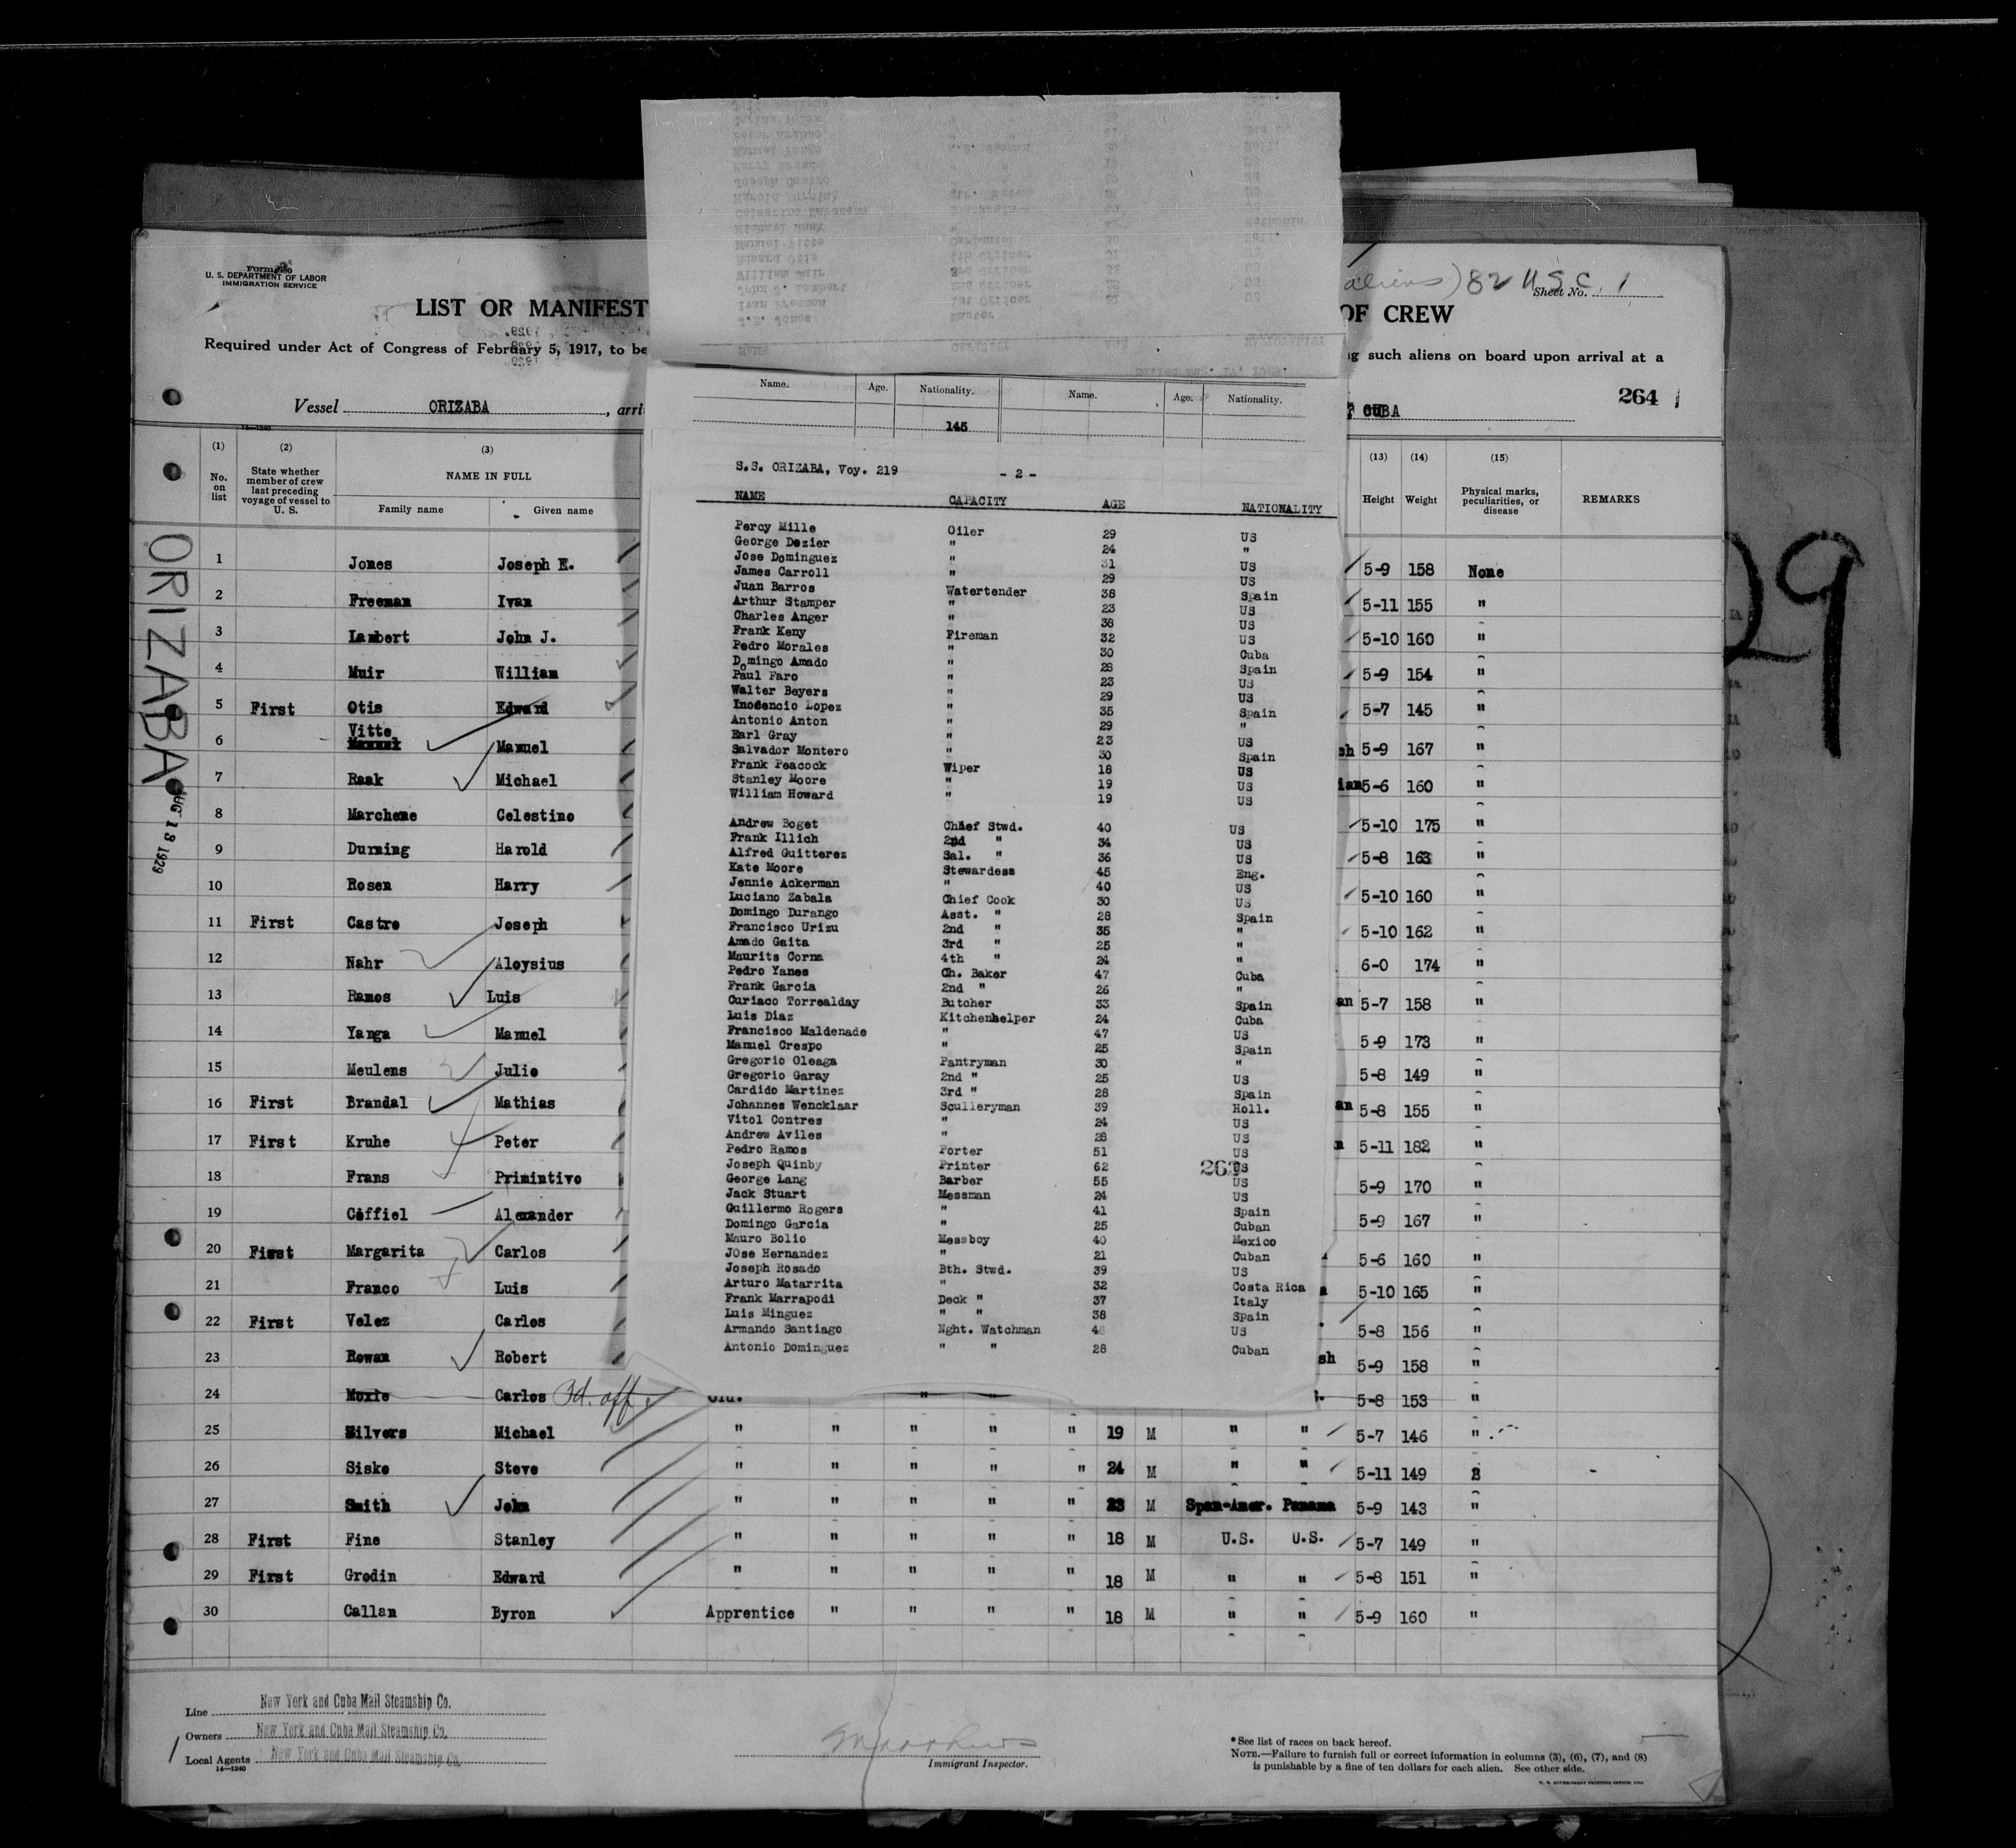 U. S. DEPARTMENT OF LABOR
IMMIGRATION SERVICE
aliens) 82 U.S.C. 1
Sheet No.
LIST OR MANIFEST
OF CREW
Required under Act of Congress of February 5, 1917, to be
such aliens on board upon arrival at a
264
Vessel ORIZABA, arri
CUBA
14—1240
(1) (2) (3) (13) (14) (15)
No. on list
State whether member of crew last preceding voyage of vessel to U. S.
NAME IN FULL
Family name Given name
Height Weight Physical marks, peculiarities, or disease REMARKS
ORIZABA
AUG 13 1929
1 Jones Joseph E. 5-9 158 None
2 Freeman Ivan 5-11 155 "
3 Lambert John J. 5-10 160 "
4 Muir William 5-9 154 "
5 First Otis Edward 5-7 145 "
6 Vitte Manuel 5-9 167 "
7 Raak Michael 5-6 160 "
8 Marchene Celestino 5-10 175 "
9 Durning Harold 5-8 163 "
10 Rosen Harry 5-10 160 "
11 First Castro Joseph 5-10 162 "
12 Nahr Aloysius 6-0 174 "
13 Ramos Luis 5-7 158 "
14 Yanga Manuel 5-9 173 "
15 Meulens Julio 5-8 149 "
16 First Brandal Mathias 5-8 155 "
17 First Kruhe Peter 5-11 182 "
18 Frans Primintivo 5-9 170 "
19 Coffiel Alexander 5-9 167 "
20 First Margarita Carlos 5-6 160 "
21 Franco Luis 5-10 165 "
22 First Velez Carlos 5-8 156 "
23 Rowan Robert 5-9 158 "
24 Moxie Carlos Pd. off. Ord. " " 5-8 153 "
25 Michael " " " " " 19 M " " 5-7 146 "
26 Siske Steve " " " " " 24 M " " 5-11 149
27 Smith John " " " " " 23 M Span-Amer. Panama 5-9 143 "
28 First Fine Stanley " " " " " 18 M U.S. U.S. 5-7 149 "
29 First Grodin Edward " " " " " 18 M " " 5-8 151 "
30 Callan Byron Apprentice " " " " 18 M " " 5-9 160 "
Name. Age. Nationality. Name. Age. Nationality.
145
S.S. ORIZABA, Voy. 219 - 2 -
NAME CAPACITY AGE NATIONALITY
Percy Mille Oiler 29 US
George Dozier " 24 "
Jose Dominguez " 31 US
James Carroll " 29 US
Juan Barros Watertender 38 Spain
Arthur Stamper " 23 US
Charles Anger " 38 US
Frank Keny Fireman 32 US
Pedro Morales " 30 Cuba
Domingo Amado " 28 Spain
Paul Faro " 23 US
Walter Beyers " 29 US
Inocencio Lopez " 35 Spain
Antonio Anton " 29 "
Earl Gray " 23 US
Salvador Montero " 30 Spain
Frank Peacock Wiper 18 US
Stanley Moore " 19 US
William Howard " 19 US
Andrew Boget Chief Stwd. 40 US
Frank Illich 2nd " 34 US
Alfred Guitterez Sal. " 36 US
Kate Moore Stewardess 45 Eng.
Jennie Ackerman " 40 US
Luciano Zabala Chief Cook 30 US
Domingo Durango Asst. " 28 Spain
Francisco Urizu 2nd " 35 "
Amado Gaita 3rd " 25 "
Maurits Corna 4th " 24 "
Pedro Yanes Ch. Baker 47 Cuba
Frank Garcia 2nd " 26 "
Curiaco Torrealday Butcher 33 Spain
Luis Diaz Kitchenhelper 24 Cuba
Francisco Maldenado " 47 US
Manuel Crespo " 25 Spain
Gregorio Oleaga Pantryman 30 "
Gregorio Garay 2nd " 25 US
Cardido Martinez 3rd " 28 Spain
Johannes Wencklaar Sculleryman 39 Holl.
Vitol Contres " 24 US
Andrew Aviles " 28 US
Pedro Ramos Porter 51 US
Joseph Quinby Printer 62 US
George Lang Barber 55 US
Jack Stuart Messman 24 US
Guillermo Rogers " 41 Spain
Domingo Garcia " 25 Cuban
Mauro Bolio Messboy 40 Mexico
JOse Hernandez " 21 Cuban
Joseph Rosado Bth. Stwd. 39 US
Arturo Matarrita " 32 Costa Rica
Frank Marrapodi Deck " 37 Italy
Luis Minguez " " 38 Spain
Armando Santiago Nght. Watchman 48 US
Antonio Dominguez " " 28 Cuban
Line New York and Cuba Mail Steamship Co.
Owners New York and Cuba Mail Steamship Co.
Local Agents New York and Cuba Mail Steamship Co.
14—1240
Immigrant Inspector.
*See list of races on back hereof.
NOTE.—Failure to furnish full or correct information in columns (3), (6), (7), and (8)
is punishable by a fine of ten dollars for each alien. See other side.